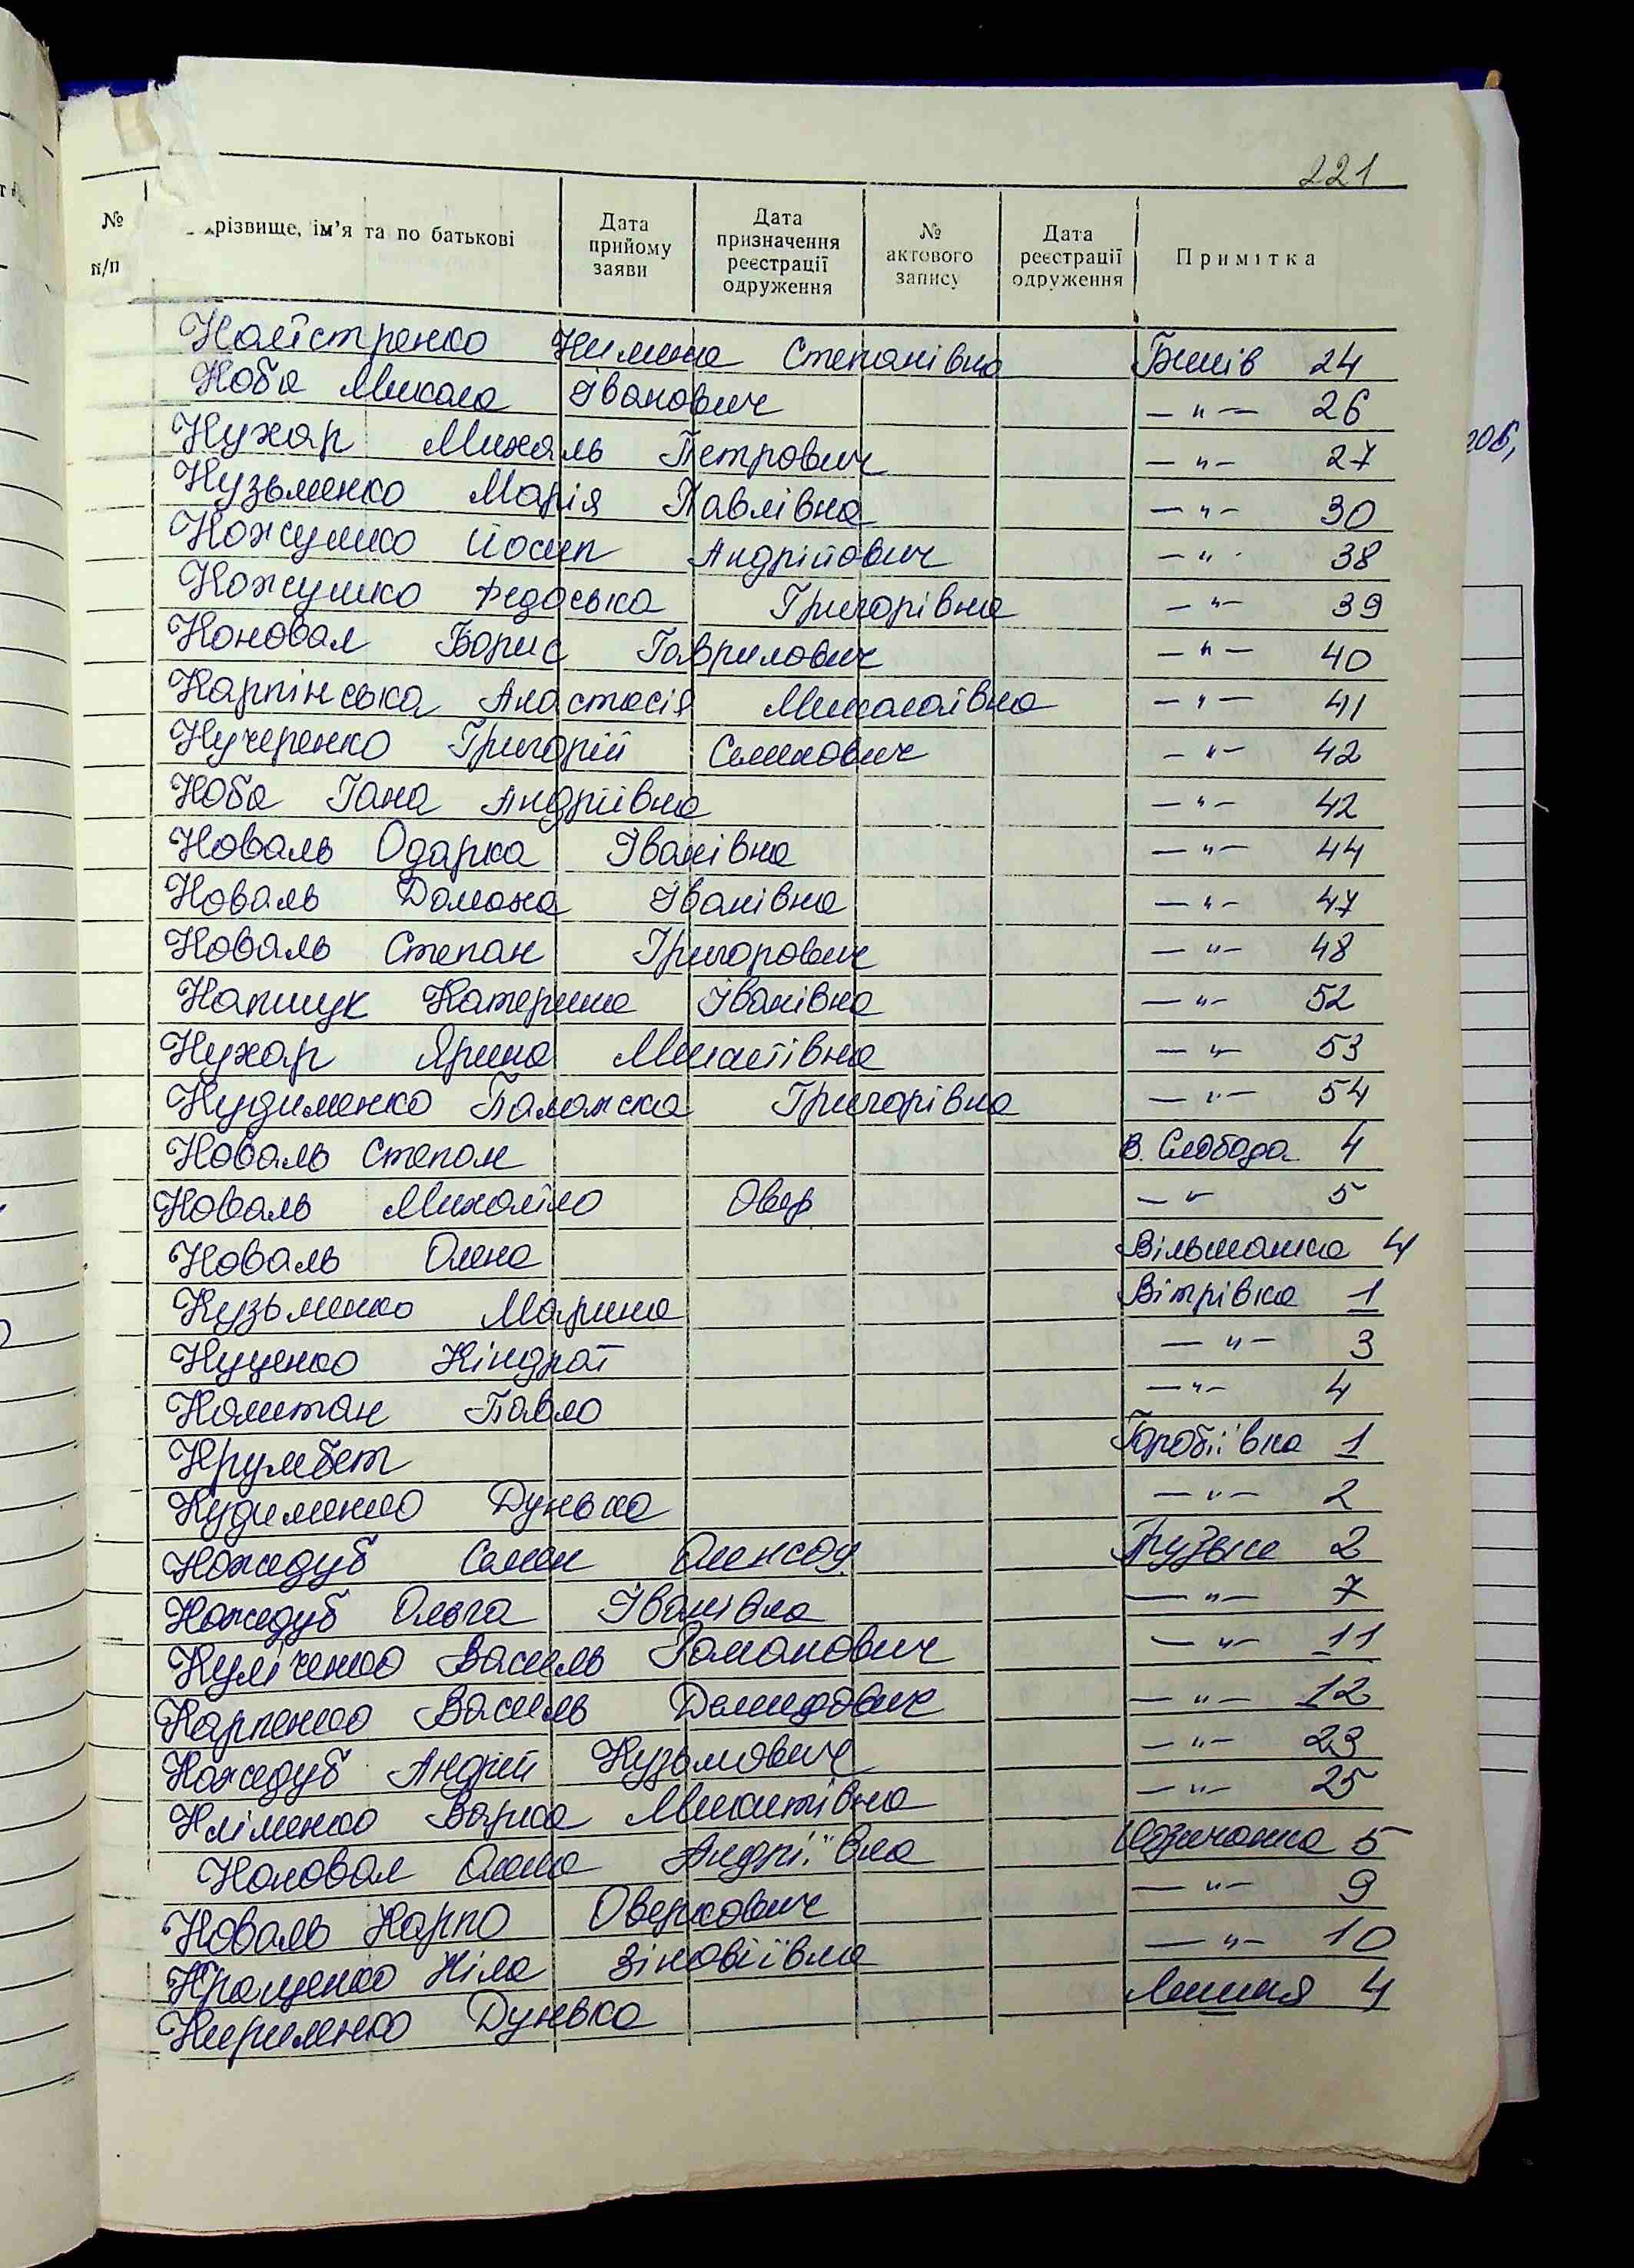 221
№ п/п різвище, ім'я та по батькові Дата прийому заяви Дата призначення реєстрації одруження № актового запису Дата реєстрації одруження Примітка
Калістренко Килина Степанівна Бишів 24
Коба Микола Іванович — „ — 26
Кухар Михаль Петрович — „ — 27
Кузьменко Марія Павлівна — „ — 30
Кожушко Йосип Андрійович — „ - 38
Кожушко Федоська Григорівна — „ — 39
Коновал Борис Гаврилович — „ — 40
Карпінська Анастасія Миколаївна — „ — 41
Кучеренко Григорій Семенович — „ — 42
Коба Гана Андріївна — „ — 42
Коваль Одарка Іванівна — „ — 44
Коваль Домаха Іванівна — „ — 47
Коваль Степан Григорович — „ — 48
Капшук Катерина Іванівна — „ — 52
Кухар Ярина Микитівна — „ — 53
Кудименко Палажка Григорівна — „ — 54
Коваль Степан В. Слобода 4
Коваль Михайло Овер — „ 5
Коваль Олена Вільшанка 4
Кузьменко Марина Вітрівка 1
Куценко Кіндрат — „ — 3
Каштан Павло — „ — 4
Крумбет Горобіївка 1
Кудименко Дунька — „ — 2
Кожедуб Семен Олексов. Грузьке 2
Кожедуб Ольга Іванівна — „ — 7
Куліченко Василь Романович — „ — 11
Карпенко Василь Демидович — „ — 12
Кожедуб Андрій Кузьмович — „ — 23
Кліменко Варка Микитівна — „ — 25
Коновал Олена Андріївна Козичанка 5
Коваль Карпо Оверкович — „ — 9
Кращенко Ніла Зіновіївна — „ — 10
Кириленко Дунька Лишня 4